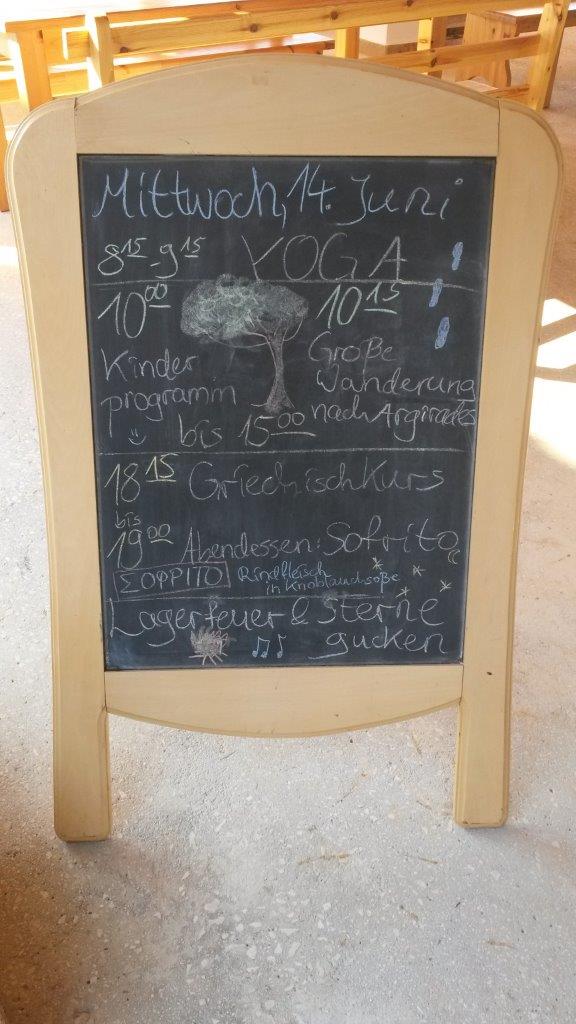 Mittwoch, 14. Juni
8 15 - 9 15 YOGA
10 00
Kinder
programm
10 15
Große
Wanderung
nach Argirades
bis 15 00
18 15 Griechischkurs
bis
19 00 Abendessen: Sofrito
ΣΟΦΡΙΤΟ Rindfleisch
in Knoblauchsoße
Lagerfeuer & Sterne
gucken